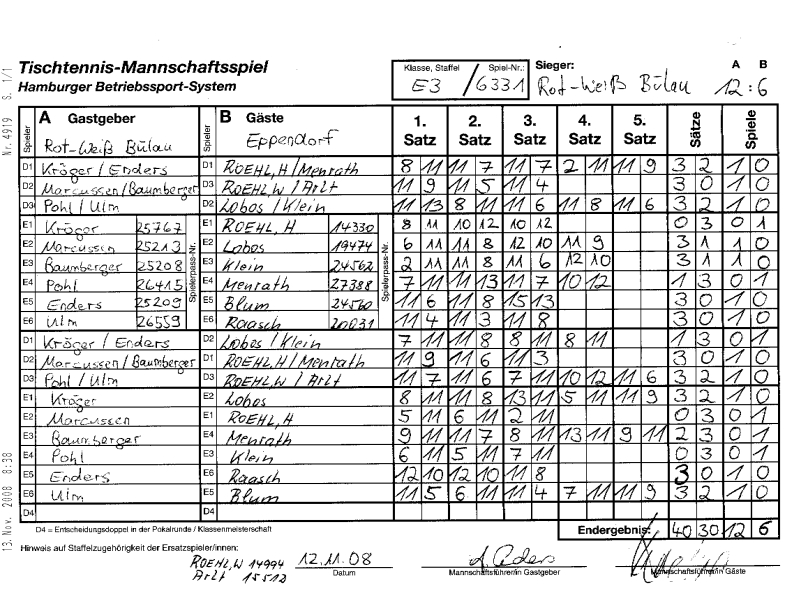 Nr. 4919 S. 1/1
13. Nov. 2008 8:38
Tischtennis-Mannschaftsspiel
Hamburger Betriebssport-System
Klasse, Staffel Spiel-Nr.: Sieger: A B
E3 6331 Rot-Weiß Bülau 12:6
Spieler A Gastgeber Spieler B Gäste 1. Satz 2. Satz 3. Satz 4. Satz 5. Satz Sätze Spiele
Rot-Weiß Bülau Eppendorf
D1 Kröger / Enders D1 ROEHL, H / Menrath 8 11 11 7 11 7 2 11 11 9 3 2 1 0
D2 Marcussen / Baumberger D3 ROEHL, W / Arlt 11 9 11 5 11 4 3 0 1 0
D3 Pohl / Ulm D2 Lobos / Klein 11 13 8 11 11 6 11 8 11 6 3 2 1 0
E1 Kröger 25767 E1 ROEHL, H 14330 8 11 10 12 10 12 0 3 0 1
E2 Marcussen 25213 E2 Lobos 19474 6 11 11 8 12 10 11 9 3 1 1 0
E3 Baumberger 25208 E3 Klein 24562 2 11 11 8 11 6 12 10 3 1 1 0
E4 Pohl 26415 E4 Menrath 27388 7 11 11 13 11 7 10 12 1 3 0 1
E5 Enders 25209 E5 Blum 24560 11 6 11 8 15 13 3 0 1 0
E6 Ulm 26559 E6 Raasch 20031 11 4 11 3 11 8 3 0 1 0
Spielerpass-Nr. Spielerpass-Nr.
D1 Kröger / Enders D2 Lobos / Klein 7 11 11 8 8 11 8 11 1 3 0 1
D2 Marcussen / Baumberger D1 ROEHL, H / Menrath 11 9 11 6 11 3 3 0 1 0
D3 Pohl / Ulm D3 ROEHL, W / Arlt 11 7 11 6 7 11 10 12 11 6 3 2 1 0
E1 Kröger E2 Lobos 8 11 11 8 13 11 5 11 11 9 3 2 1 0
E2 Marcussen E1 ROEHL, H 5 11 6 11 2 11 0 3 0 1
E3 Baumberger E4 Menrath 9 11 11 7 8 11 13 11 9 11 2 3 0 1
E4 Pohl E3 Klein 6 11 5 11 7 11 0 3 0 1
E5 Enders E6 Raasch 12 10 12 10 11 8 3 0 1 0
E6 Ulm E5 Blum 11 5 6 11 11 4 7 11 11 9 3 2 1 0
D4 D4
D4 = Entscheidungsdoppel in der Pokalrunde / Klassenmeisterschaft Endergebnis: 40 30 12 6
Hinweis auf Staffelzugehörigkeit der Ersatzspieler/innen:
ROEHL, W 14994 12.11.08
Arlt 15512 Datum Mannschaftsführer/in Gastgeber Mannschaftsführer/in Gäste